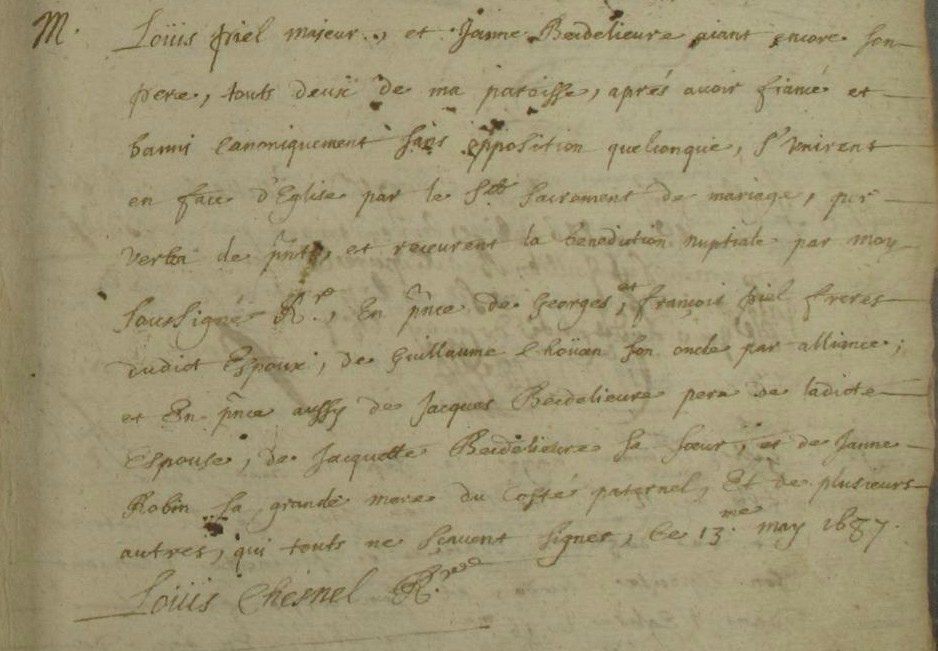 M. Loüis piel majeur., et Janne Bédelieure aiant encore son
pere, touts deux de ma paroisse, aprés avoir fiancé et
banni canoniquement sans opposition quelconque, s'unirent
en face d'Eglise par le St sacrement de mariage, per
verba de pñti, et receurent la benediction nuptiale par moy
soussigné Rr., En pñce de Georges, et françois piel freres
dudict Espoux, de Guillaume Choüan son oncle par alliance;
et En pñce aussy de Jacques Bédelieure pere de ladicte
Espouse, de Jacquette Bédelieure sa sœur, et de Janne
Robin sa grande mere du costé paternel, Et de plusieurs
autres, qui touts ne sçavent signer, Ce 13.me may 1687.
Loüis Chesnel